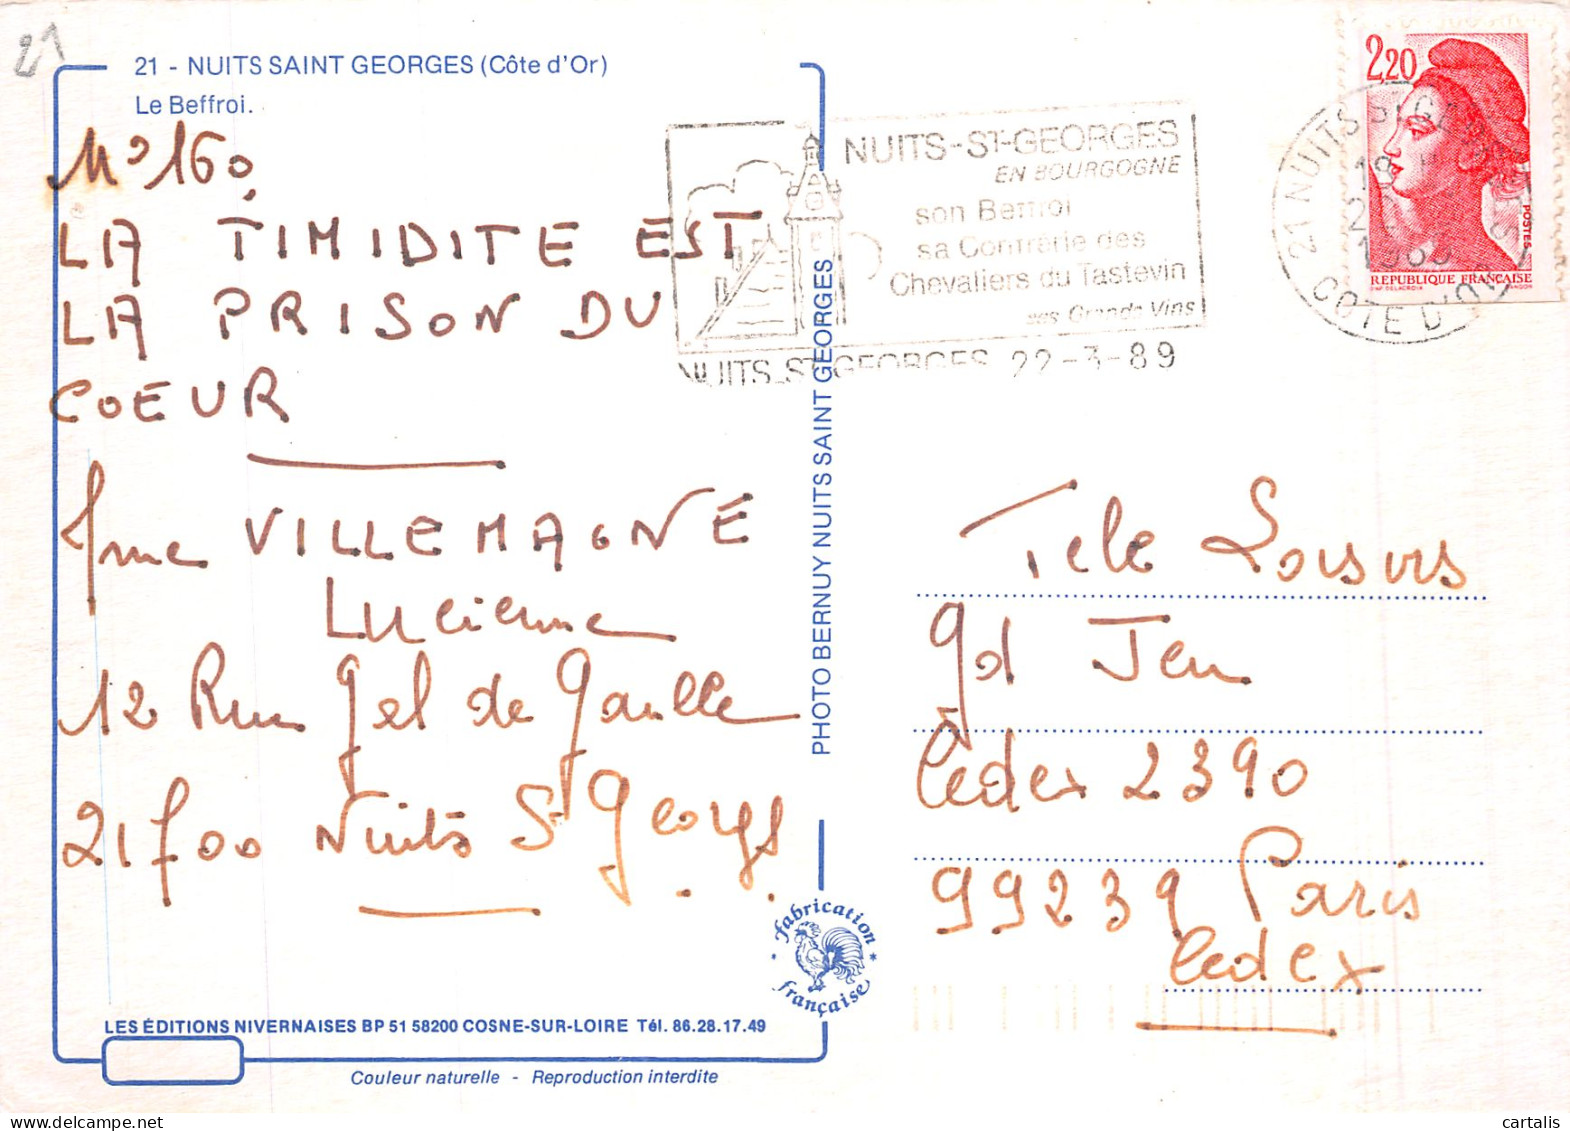 21
21 - NUITS SAINT GEORGES (Côte d'Or)
Le Beffroi.
N° 160
LA TIMIDITE EST
LA PRISON DU
COEUR
Mme VILLEMAGNE
Lucienne
12 Rue Gel de Gaulle
21700 Nuits St Georges
NUITS-ST-GEORGES
EN BOURGOGNE
son Beffroi
sa Confrérie des
Chevaliers du Tastevin
ses Grands Vins
NUITS-ST-GEORGES 22-3-89
21 NUITS ST GEORGES
CÔTE D'OR
2,20
POSTES
REPUBLIQUE FRANÇAISE
PHOTO BERNUY NUITS SAINT GEORGES
Tele Loisirs
gd Jeu
Cedex 2390
99239 Paris
Cedex
fabrication
française
LES ÉDITIONS NIVERNAISES BP 51 58200 COSNE-SUR-LOIRE Tél. 86.28.17.49
Couleur naturelle - Reproduction interdite
cartalis